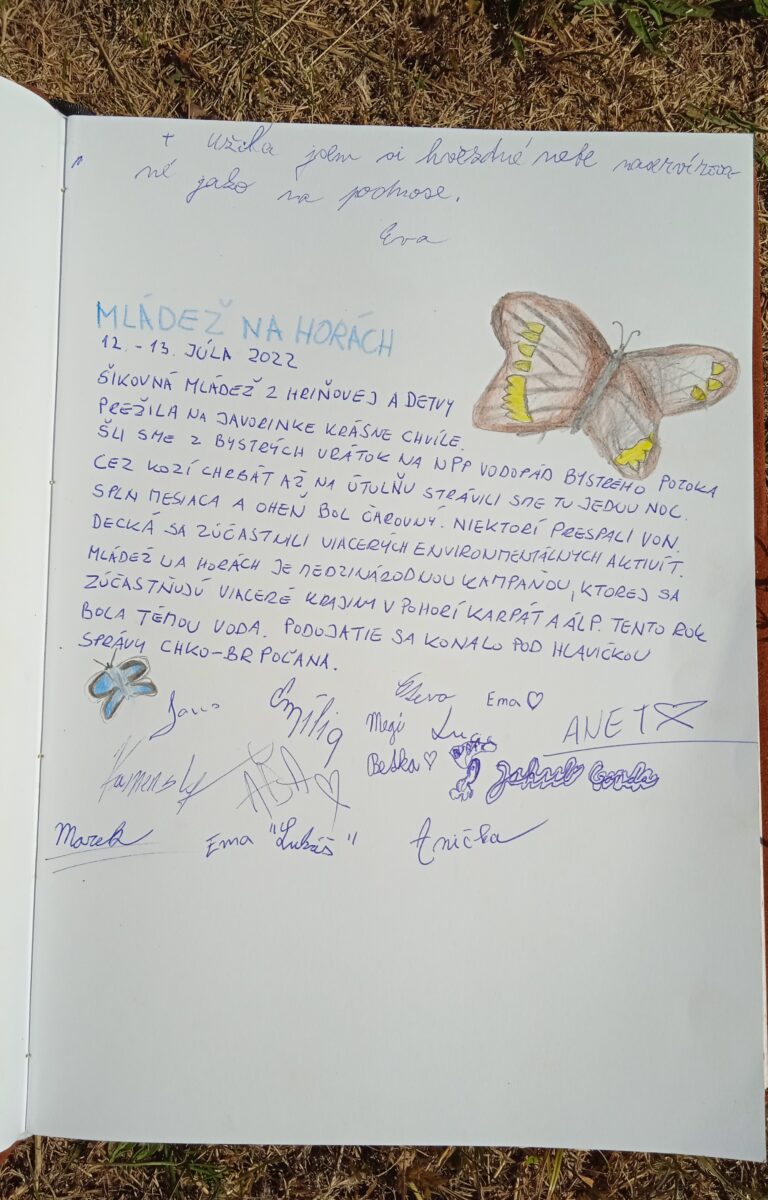 + užila jsem si hvězdné nebe naservírova-
né jako na podnose.
Eva
MLÁDEŽ NA HORÁCH
12. - 13. JÚLA 2022
ŠIKOVNÁ MLÁDEŽ Z HRIŇOVEJ A DETVY
PREŽILA NA JAVORINKE KRÁSNE CHVÍLE.
ŠLI SME Z BYSTRÝCH VRÁTOK NA NPP VODOPÁD BYSTRÉHO POTOKA
CEZ KOZÍ CHRBÁT AŽ NA ÚTULŇU STRÁVILI SME TU JEDNU NOC.
SPLN MESIACA A OHEŇ BOL ČAROVNÝ. NIEKTORÍ PRESPALI VON.
DECKÁ SA ZÚČASTNILI VIACERÝCH ENVIRONMENTÁLNYCH AKTIVÍT.
MLÁDEŽ NA HORÁCH JE MEDZINÁRODNOU KAMPAŇOU, KTOREJ SA
ZÚČASTŇUJÚ VIACERÉ KRAJINY V POHORÍ KARPÁT A ÁLP. TENTO ROK
BOLA TÉMOU VODA. PODUJATIE SA KONALO POD HLAVIČKOU
SPRÁVY CHKO-BR POĽANA.
Emília
Ema ♡
Megi
ANET
Beška ♡
Jakub
Marek
Ema "Lukáš"
Anička